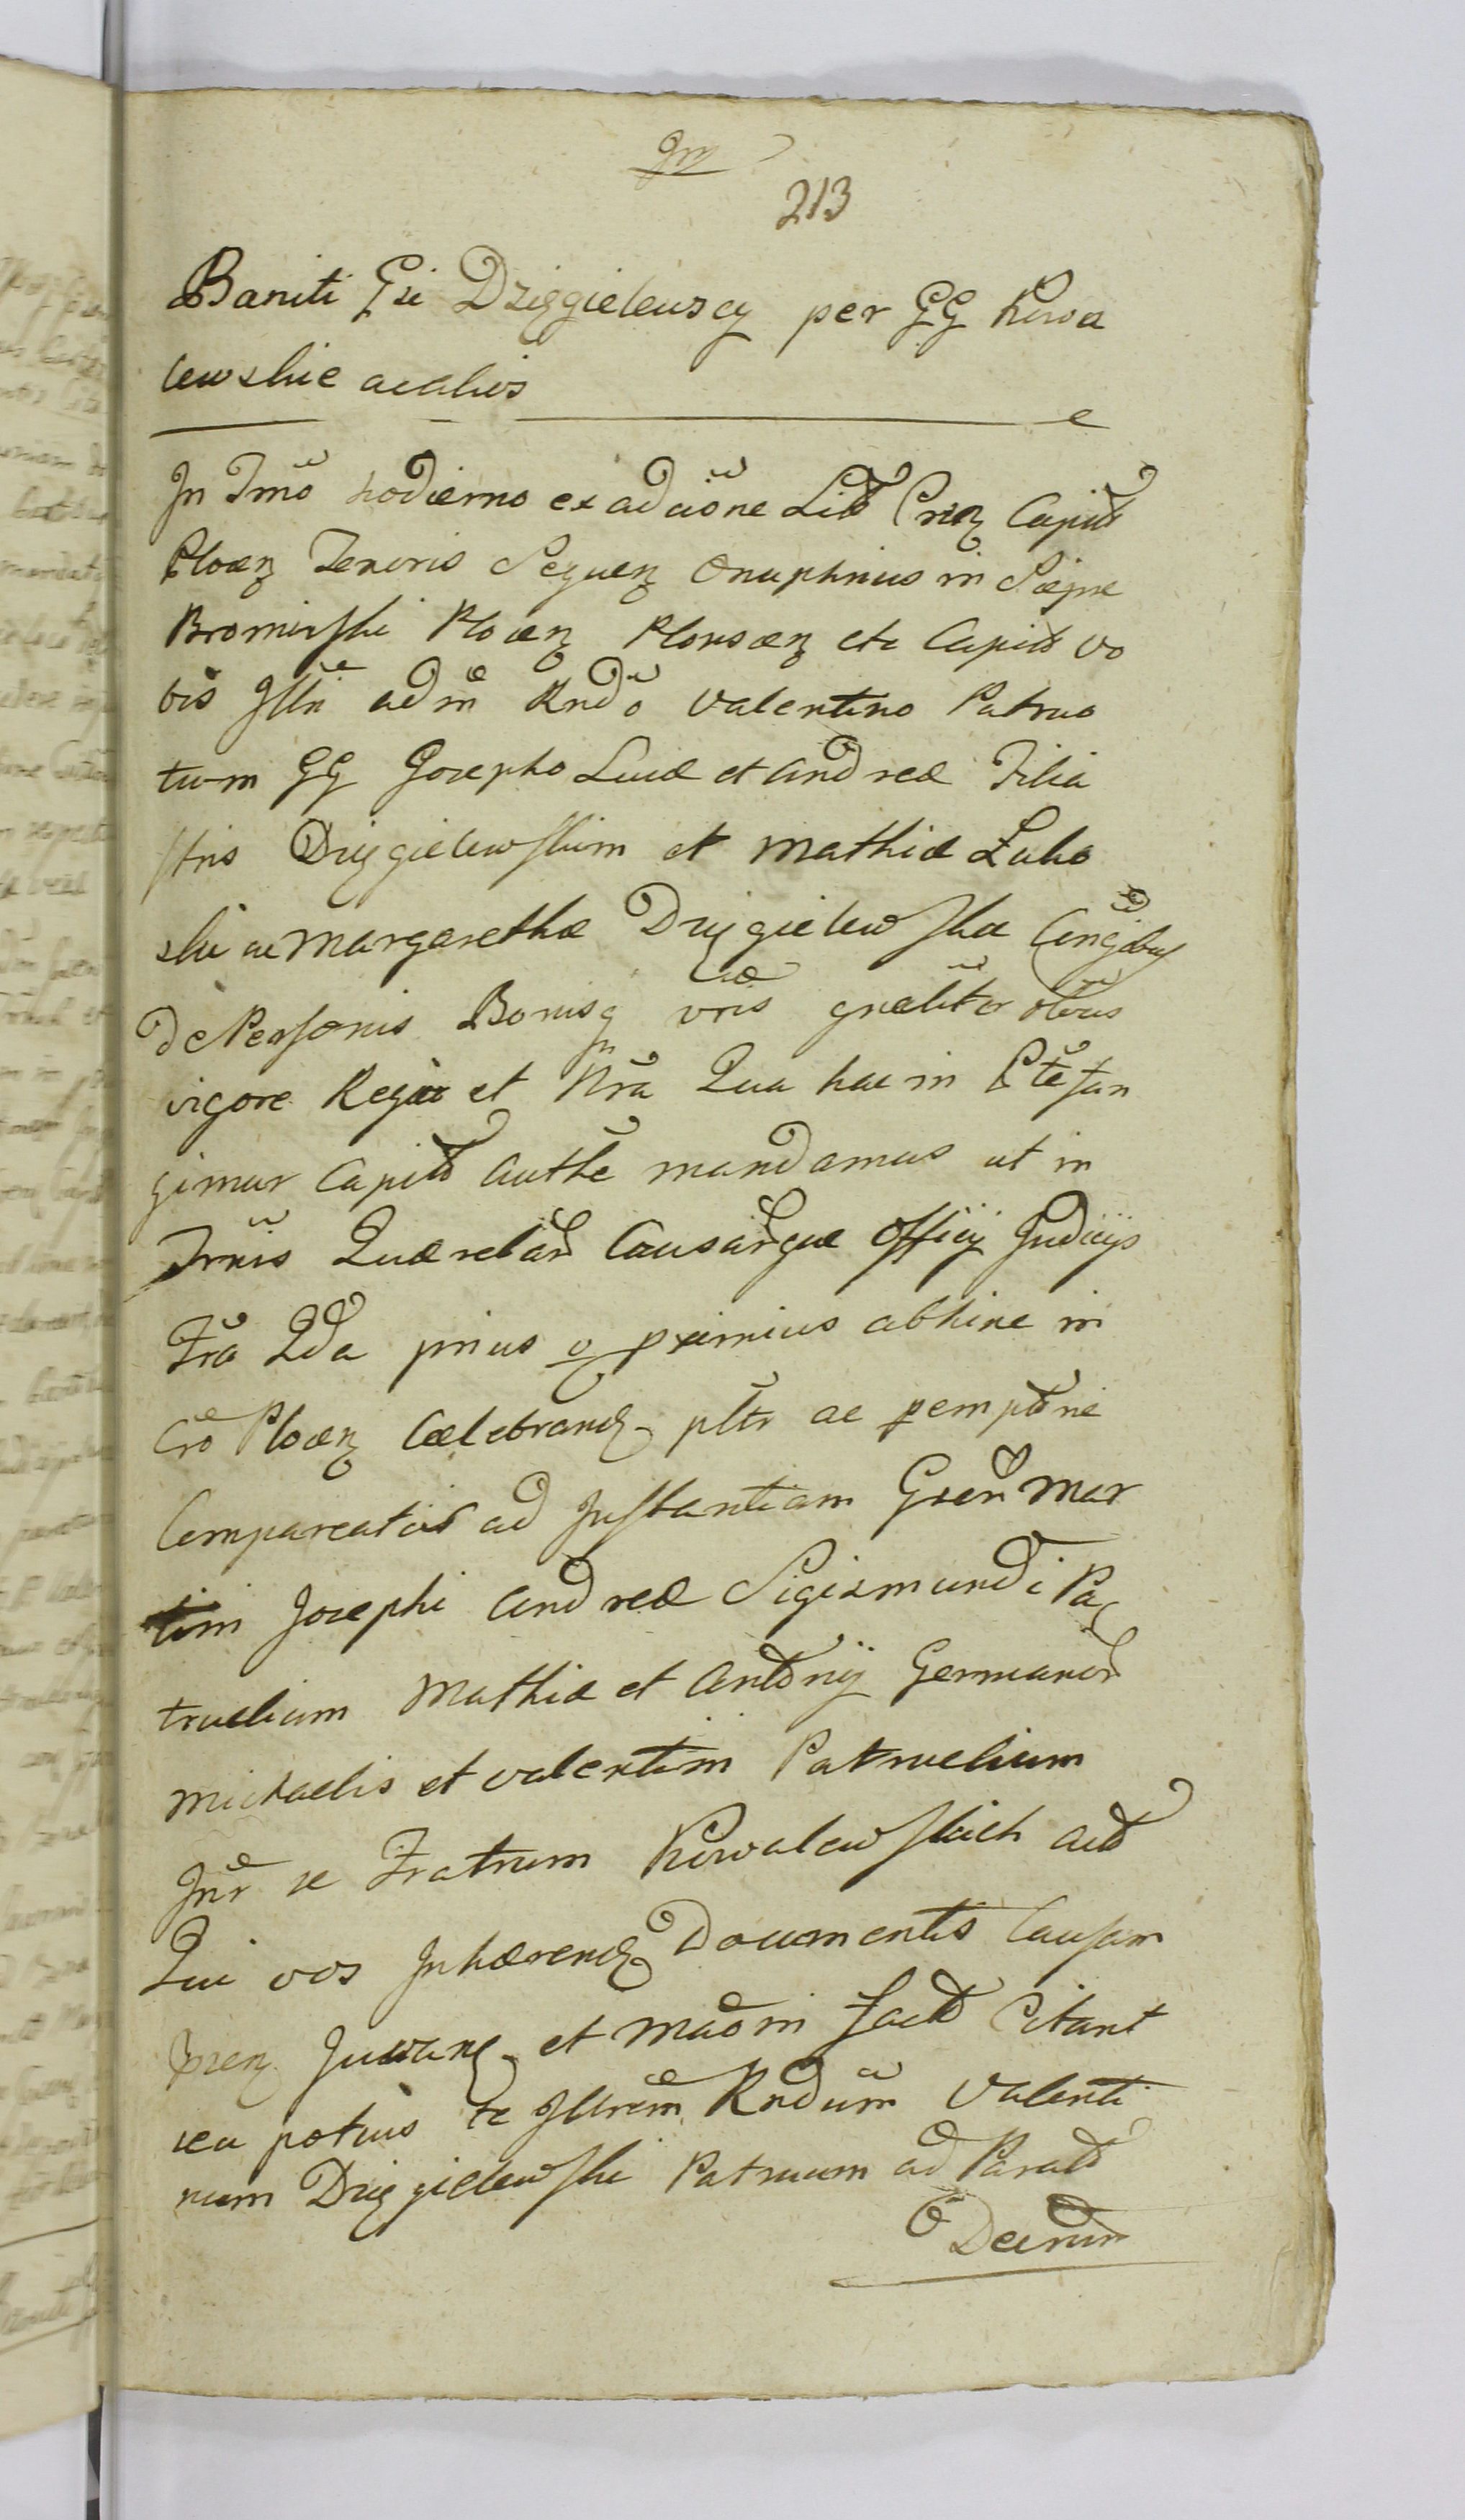 213
Baniti Gsi Dzięgielewscy per GG Kowa
lewskie ac alios
In Tmo hodierno ex adcione Lit Crien Capit
Plocen Tenoris Sequen Onuphrius in Siepre
Bromirski Plocen Plonscen etc Capit vo
bis Illri adm Rndo Valentino Patruo
tum GG Josepho Luca et Andrea Filia
stris Dzięgielewskim et Mathiæ Łako
ski ac Margarethæ Dzięgielewska Conjgibus
de Personis Bonisq vris gnaliter obus
vigore Regia et Nra Qua hac in Pte fun
gimur Capit Authe mandamus ut in
Trnis Quærelar Causarque Officij Judicijs
Fra 2da prius o pximius abhinc in
Cro Plocen Celebrand pltr ac pemptrie
Compareatis ad Instantiam Gsen Mar
tini Josephi Andreæ Sigismundi Pa
truelium Mathiæ et Antonij Germanor
Michaelis et Valentini Patruelium
Intr se Fratrum Kowalewskich act
Qui vos Inhærend Documentis Causam
Prsen Juvan et Mado in facto Citant
seu potius te Illrem Rndum Valenti
num Dzięgielewski Patruum ad Parat
Decrum